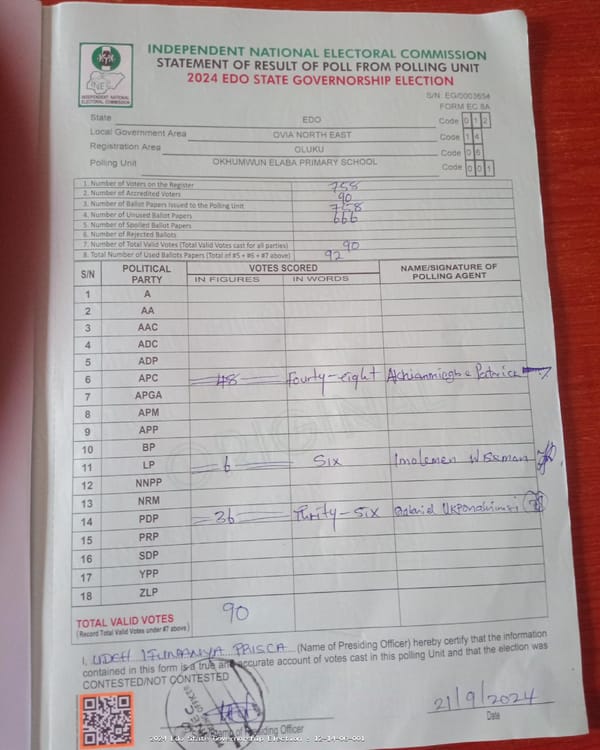 INDEPENDENT NATIONAL ELECTORAL COMMISSION
STATEMENT OF RESULT OF POLL FROM POLLING UNIT
2024 EDO STATE GOVERNORSHIP ELECTION
INEC
INDEPENDENT NATIONAL
ELECTORAL COMMISSION
S/N: EG/0003654
FORM EC 8A
State EDO Code 0 1 2
Local Government Area OVIA NORTH EAST Code 1 4
Registration Area OLUKU Code 0 6
Polling Unit OKHUMWUN ELABA PRIMARY SCHOOL Code 0 0 1
1. Number of Voters on the Register 758
2. Number of Accredited Voters 90
3. Number of Ballot Papers Issued to the Polling Unit 758
4. Number of Unused Ballot Papers 666
5. Number of Spoiled Ballot Papers
6. Number of Rejected Ballots
7. Number of Total Valid Votes (Total Valid Votes cast for all parties) 90
8. Total Number of Used Ballots Papers (Total of #5 + #6 + #7 above) 92
S/N POLITICAL PARTY VOTES SCORED NAME/SIGNATURE OF POLLING AGENT
IN FIGURES IN WORDS
1 A
2 AA
3 AAC
4 ADC
5 ADP
6 APC 48 Fourty-eight Patrick
7 APGA
8 APM
9 APP
10 BP
11 LP 6 Six Imolemen
12 NNPP
13 NRM
14 PDP 36 Thrity-Six
15 PRP
16 SDP
17 YPP
18 ZLP
TOTAL VALID VOTES 90
(Record Total Valid Votes under #7 above)
I, UDEH IFUNANYA PRISCA (Name of Presiding Officer) hereby certify that the information
contained in this form is a true and accurate account of votes cast in this polling Unit and that the election was
CONTESTED/NOT CONTESTED
21/9/2024
Presiding Officer Date
2024 Edo State Governorship Election - 12-14-06-001